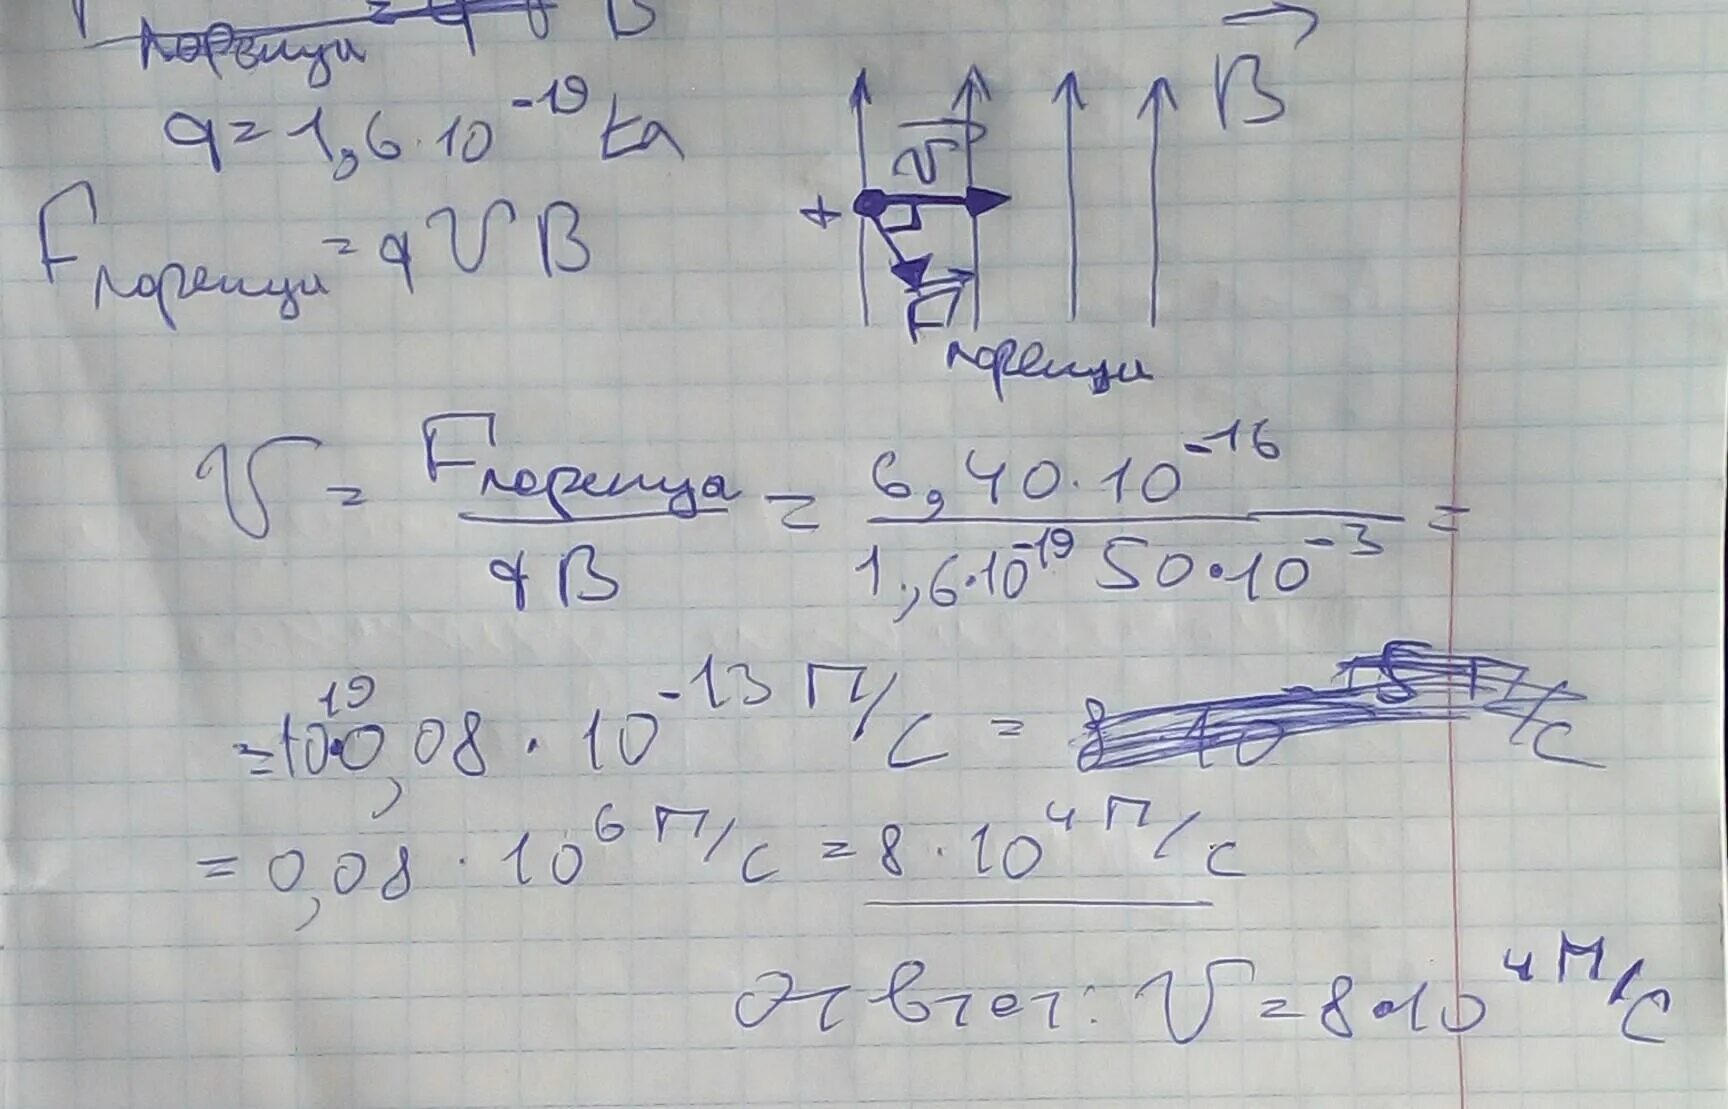 Fлоренца = q V B
q = 1,6 · 10^-19 Кл
Fлоренца = q V B
B
+
V
F лоренца
V = Fлоренца / qB = 6,40 · 10^-16 / 1,6·10^-19 50·10^-3 =
= 10^19 · 0,08 · 10^-13 м/с =
= 0,08 · 10^6 м/с = 8 · 10^4 м/с
Ответ: V = 8·10^4 м/с